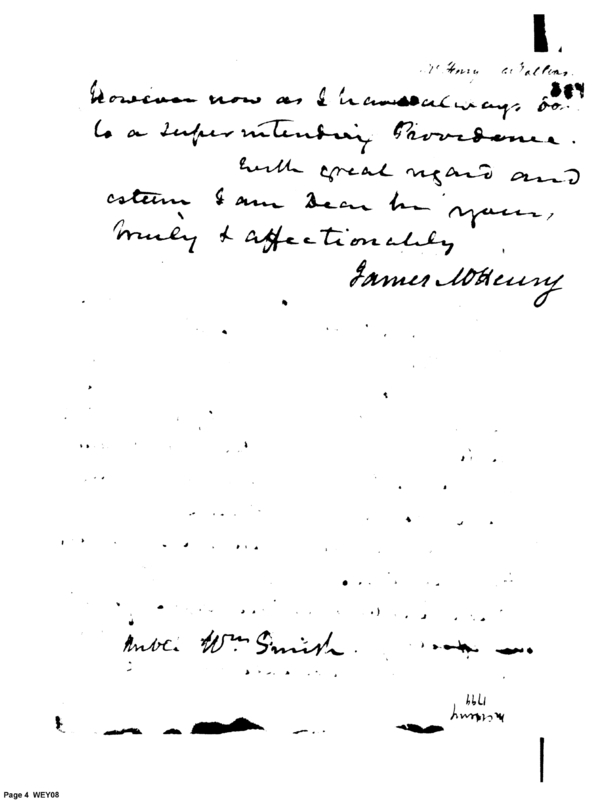 McHenry
384
however now as I have always do
to a superintending Providence.
With great regard and
esteem I am Dear Sir yours,
truly & affectionately
James McHenry
Wm Smith.
McHenry
1799
Page 4 WEY08